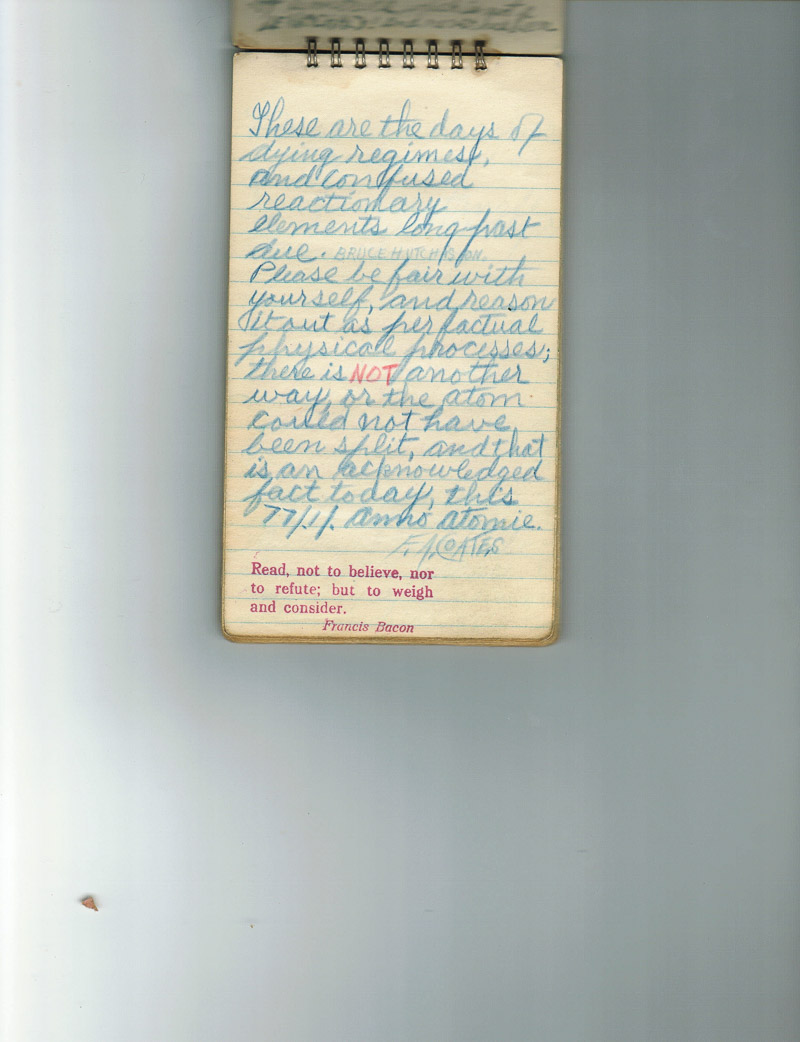 These are the days of
dying regimes,
and confused
reactionary
elements long past
due. BRUCE HUTCHISON.
Please be fair with
yourself, and reason
it out as per factual
physical processes;
there is NOT another
way, or the atom
could not have
been split, and that
is an acknowledged
fact today, this
77/1/. anno atomie.
F. J. COATES
Read, not to believe, nor
to refute; but to weigh
and consider.
Francis Bacon